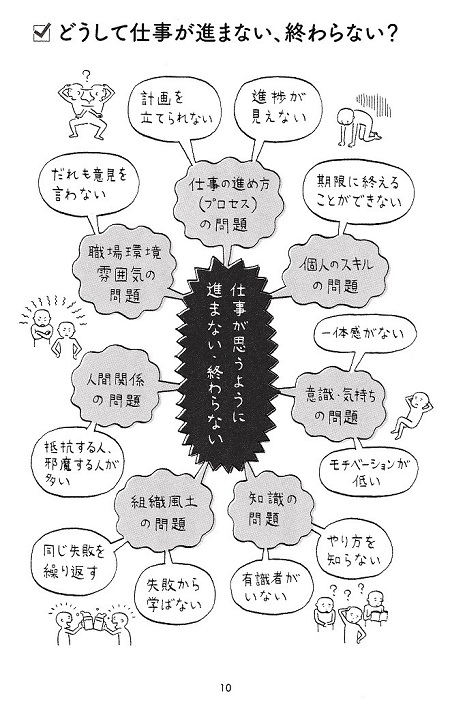 どうして仕事が進まない、終わらない？
?
計画を
立てられない
進捗が
見えない
仕事の進め方
(プロセス)
の問題
だれも意見を
言わない
期限に終える
ことができない
職場環境
雰囲気の
問題
個人のスキル
の問題
仕事が思うように
進まない・終わらない
一体感がない
人間関係
の問題
意識・気持ち
の問題
抵抗する人、
邪魔する人が
多い
モチベーションが
低い
組織風土
の問題
知識の
問題
同じ失敗を
繰り返す
失敗から
学ばない
有識者が
いない
やり方を
知らない
? ? ?
10